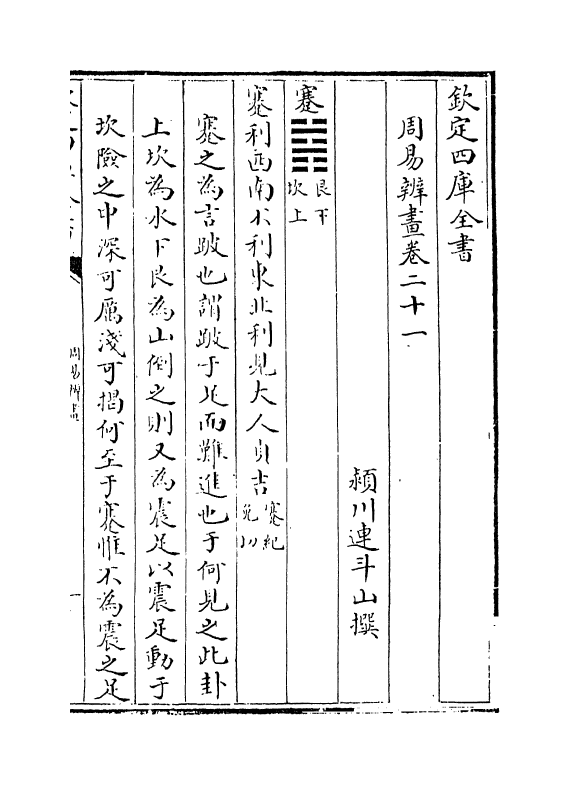 欽定四庫全書
周易辨畫卷二十一
潁川連斗山撰
蹇䷦艮下坎上
蹇利西南不利東北利見大人貞吉蹇紀
蹇之為言跛也謂跛于足而難進也于何見之此卦
上坎為水下艮為山倒之則又為震足以震足動于
坎險之中深可厲淺可揭何至于蹇惟不為震之足
周易辨畫
一